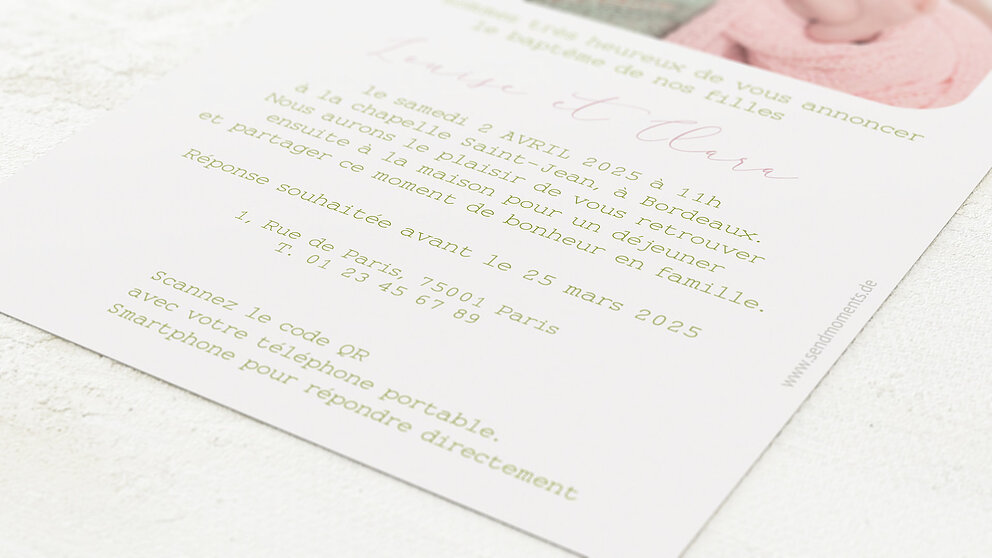 sommes très heureux de vous annoncer
le baptême de nos filles
Louise et Clara
le samedi 2 AVRIL 2025 à 11h
à la chapelle Saint-Jean, à Bordeaux.
Nous aurons le plaisir de vous retrouver
ensuite à la maison pour un déjeuner
et partager ce moment de bonheur en famille.
Réponse souhaitée avant le 25 mars 2025
1. Rue de Paris, 75001 Paris
T. 01 23 45 67 89
Scannez le code QR
avec votre téléphone portable.
Smartphone pour répondre directement
www.sendmoments.de